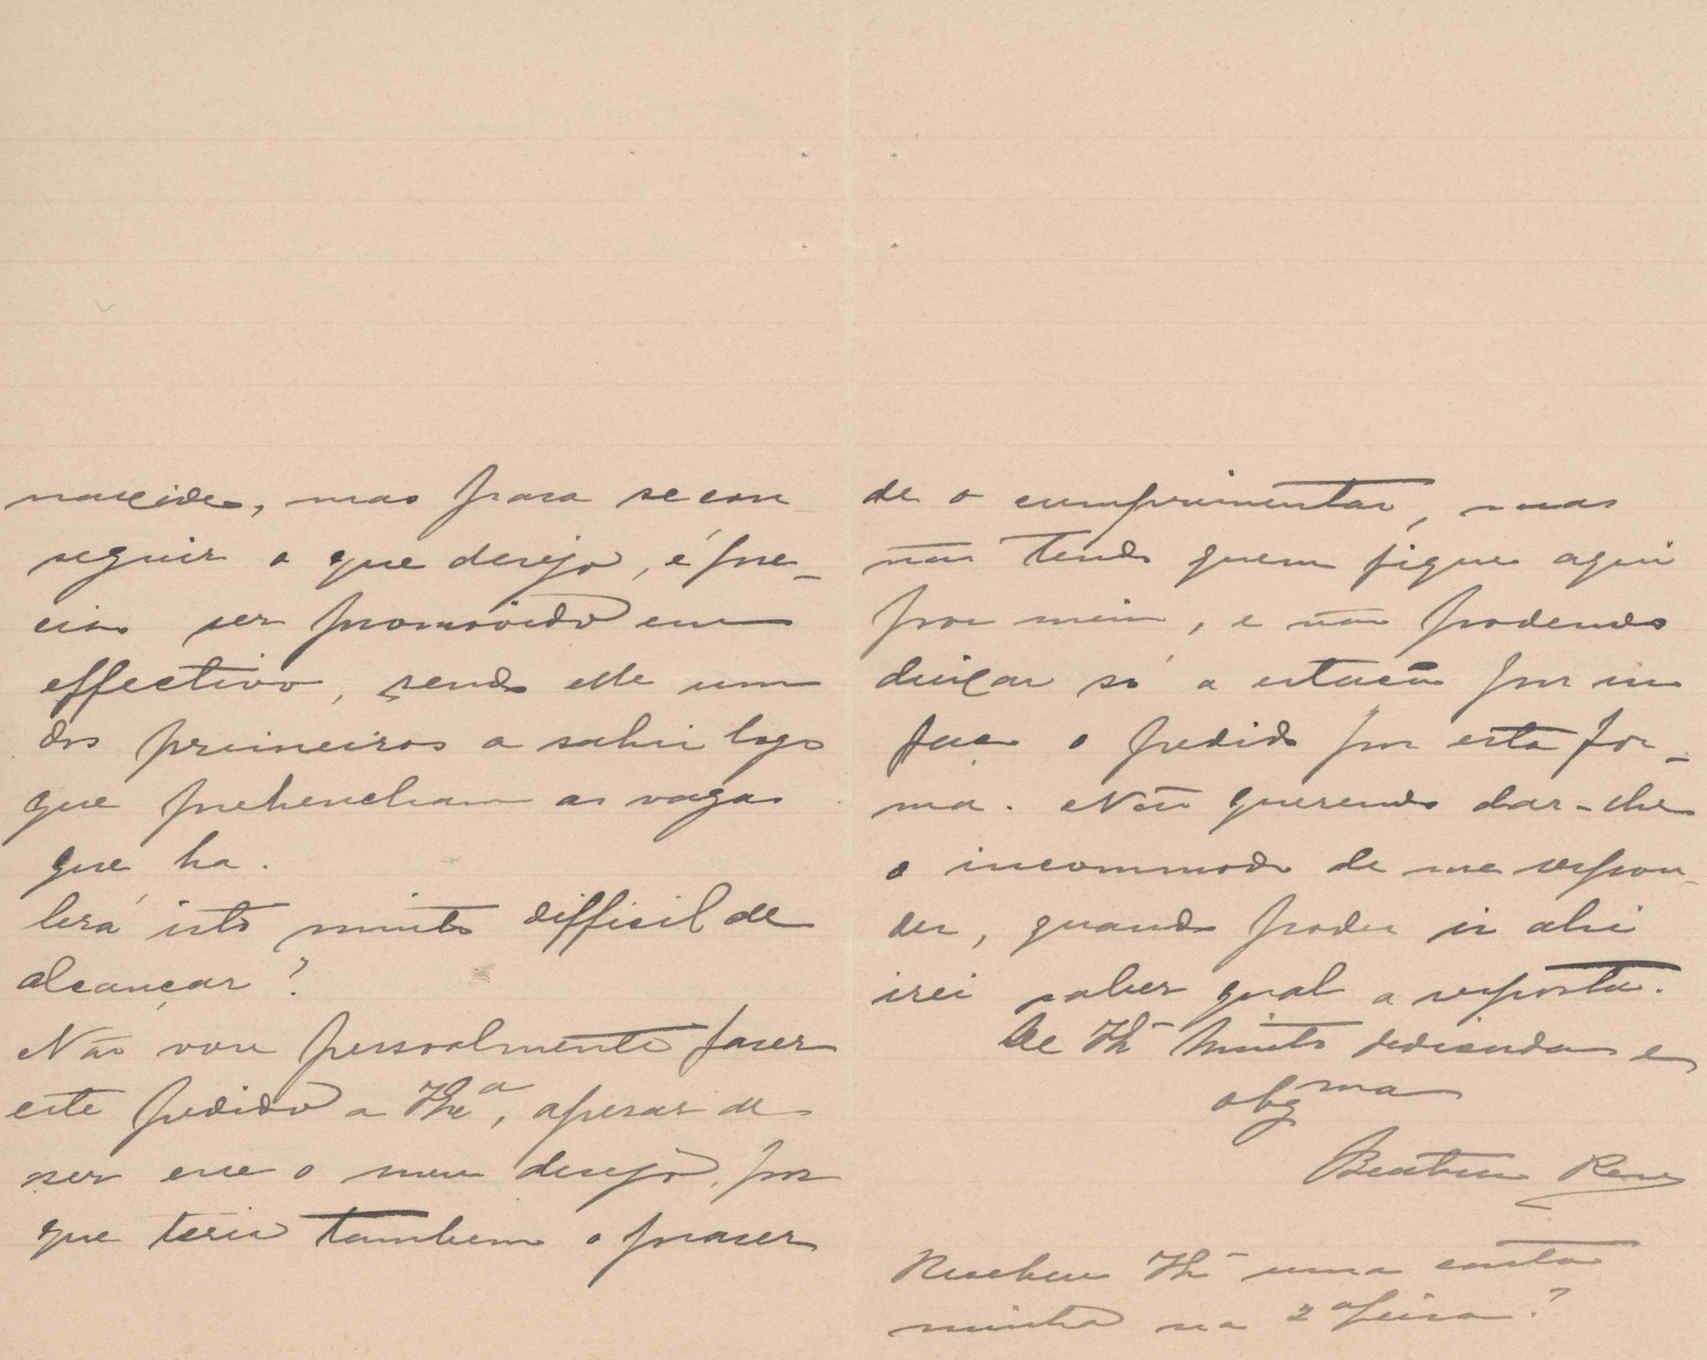 nascido, mas para se con
seguir o que desejo, é pre-
ciso ser promovido em
effectivo, sendo elle um
dos primeiros a sahir logo
que prehencham as vagas
que ha.
Será isto muito difficil de
alcançar?
Não vou pessoalmente faser
este pedido a Exª, apesar de
ser esse o meu desejo, por
que teria tambem o praser
de o cumprimentar, mas
não tendo quem fique aqui
por mim, e não podendo
deixar só a estação por isso
faço o pedido por esta for-
ma. Não querendo dar-lhe
o incommodo de me respon-
der, quando poder ir ahi
irei saber qual a resposta.
De muito dedicada e
obgma
Beatriz
Recebeu uma carta
minha na 2ª feira?